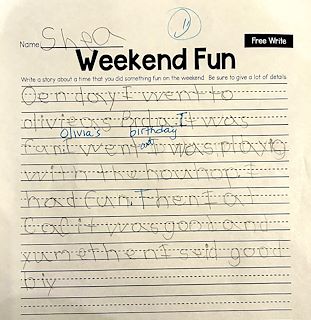 11
Free Write
Name Shea
Weekend Fun
Write a story about a time that you did something fun on the weekend. Be sure to give a lot of details
Oen day I went to
olivieas Brda It was
Olivia's birthday
fun I went was playig
and
with the
had fun. Then I at
Caf it was good and
yum then I seid good
biy